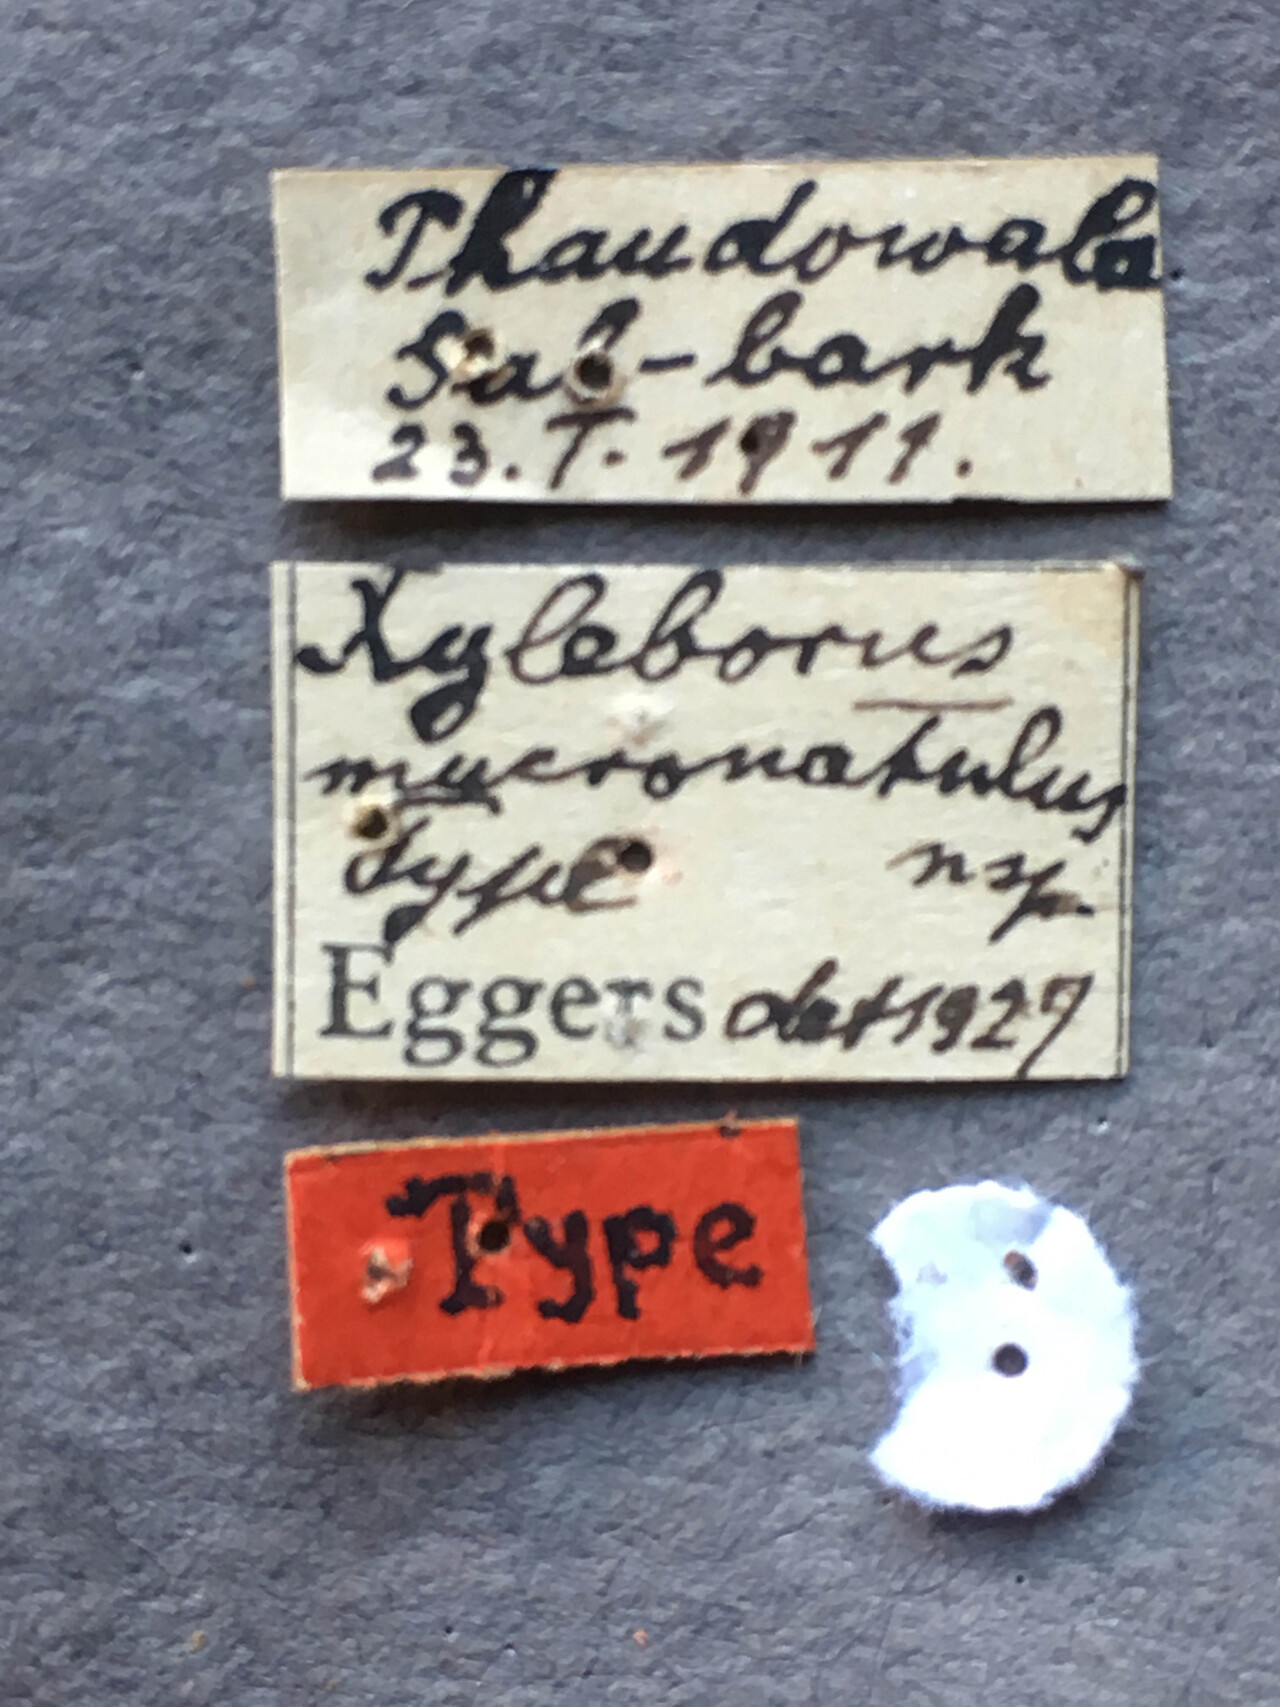 Thaudowala
Sal-bark
23. I. 1911.
Xyleborus
mucronatulus
Type n sp.
Eggers det 1927
Type